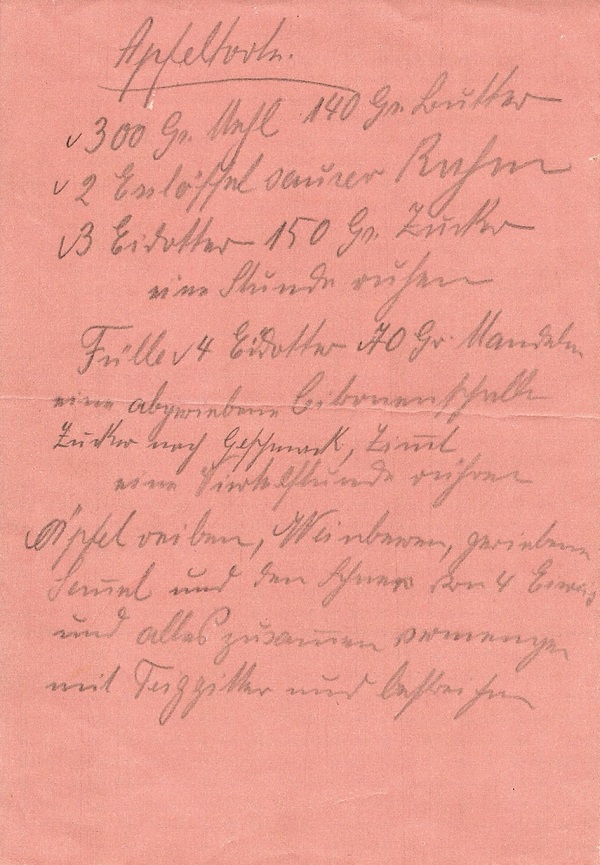 Apfeltorte.
300 Gr. Mehl 140 Gr. Butter
2 Eslöffel saurer Rahm
3 Eidotter 150 Gr. Zucker
eine Stunde ruhen
Fülle 4 Eidotter 70 Gr. Mandeln
eine abgeriebene Citronenschalle
Zucker nach Geschmack, Zimt
eine Viertelstunde rühren
Äpfel reiben, Weinberren, geriebene
Semmel und den Schnee von 4 Eiweis
und alles zusammen vermengen
mit Teiggitter und bestreichen